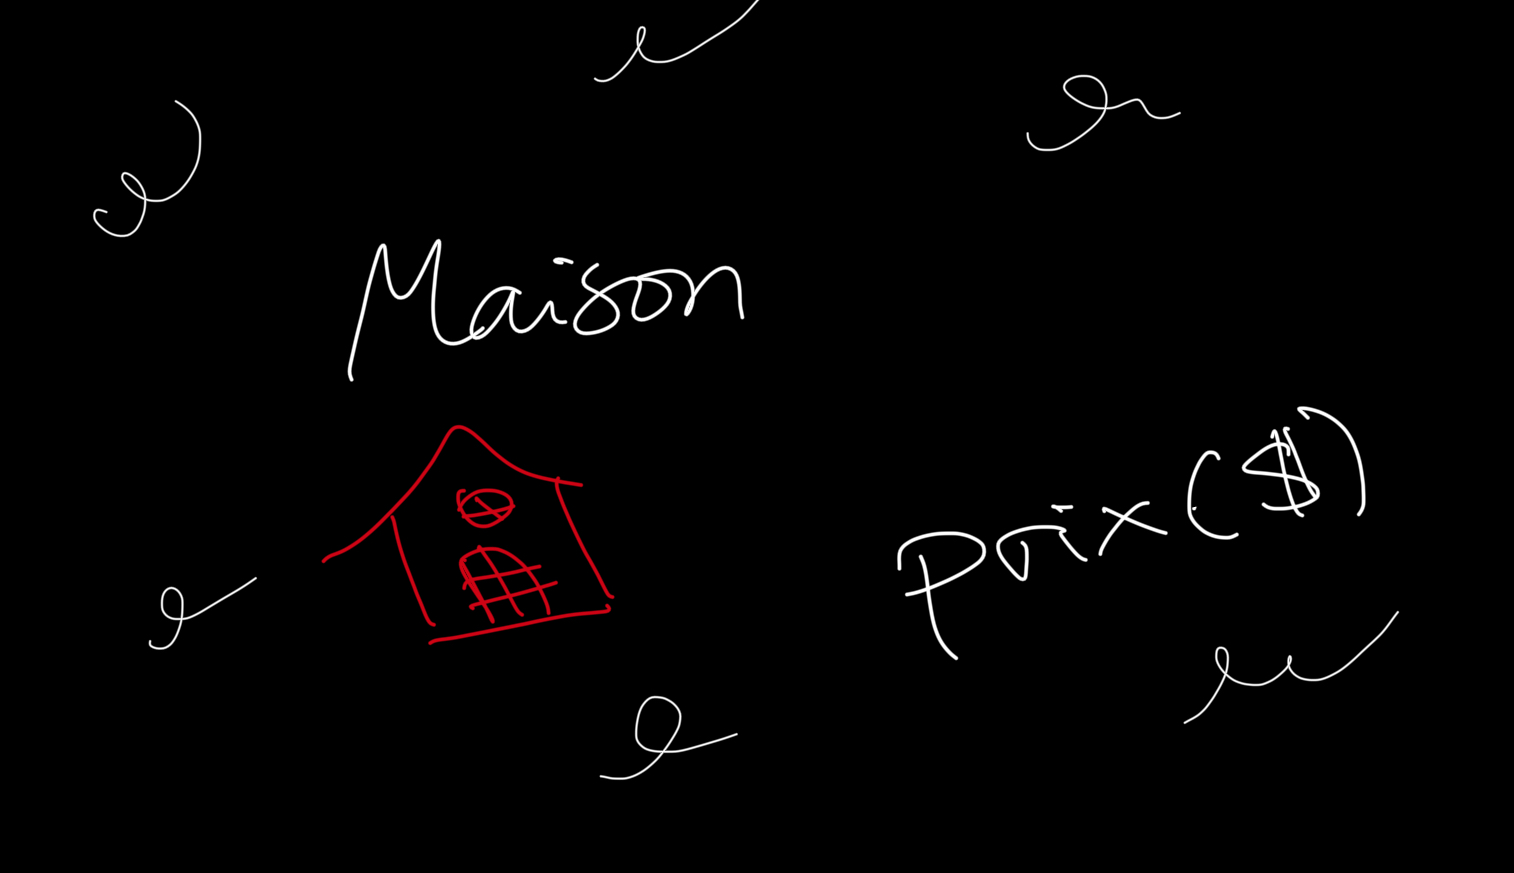 Maison
prix ($)